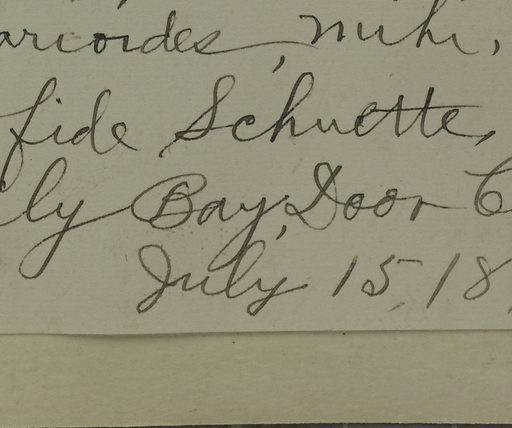 arioides, mihi,
fide Schuette,
ly Bay, Door C
July, 15, 18